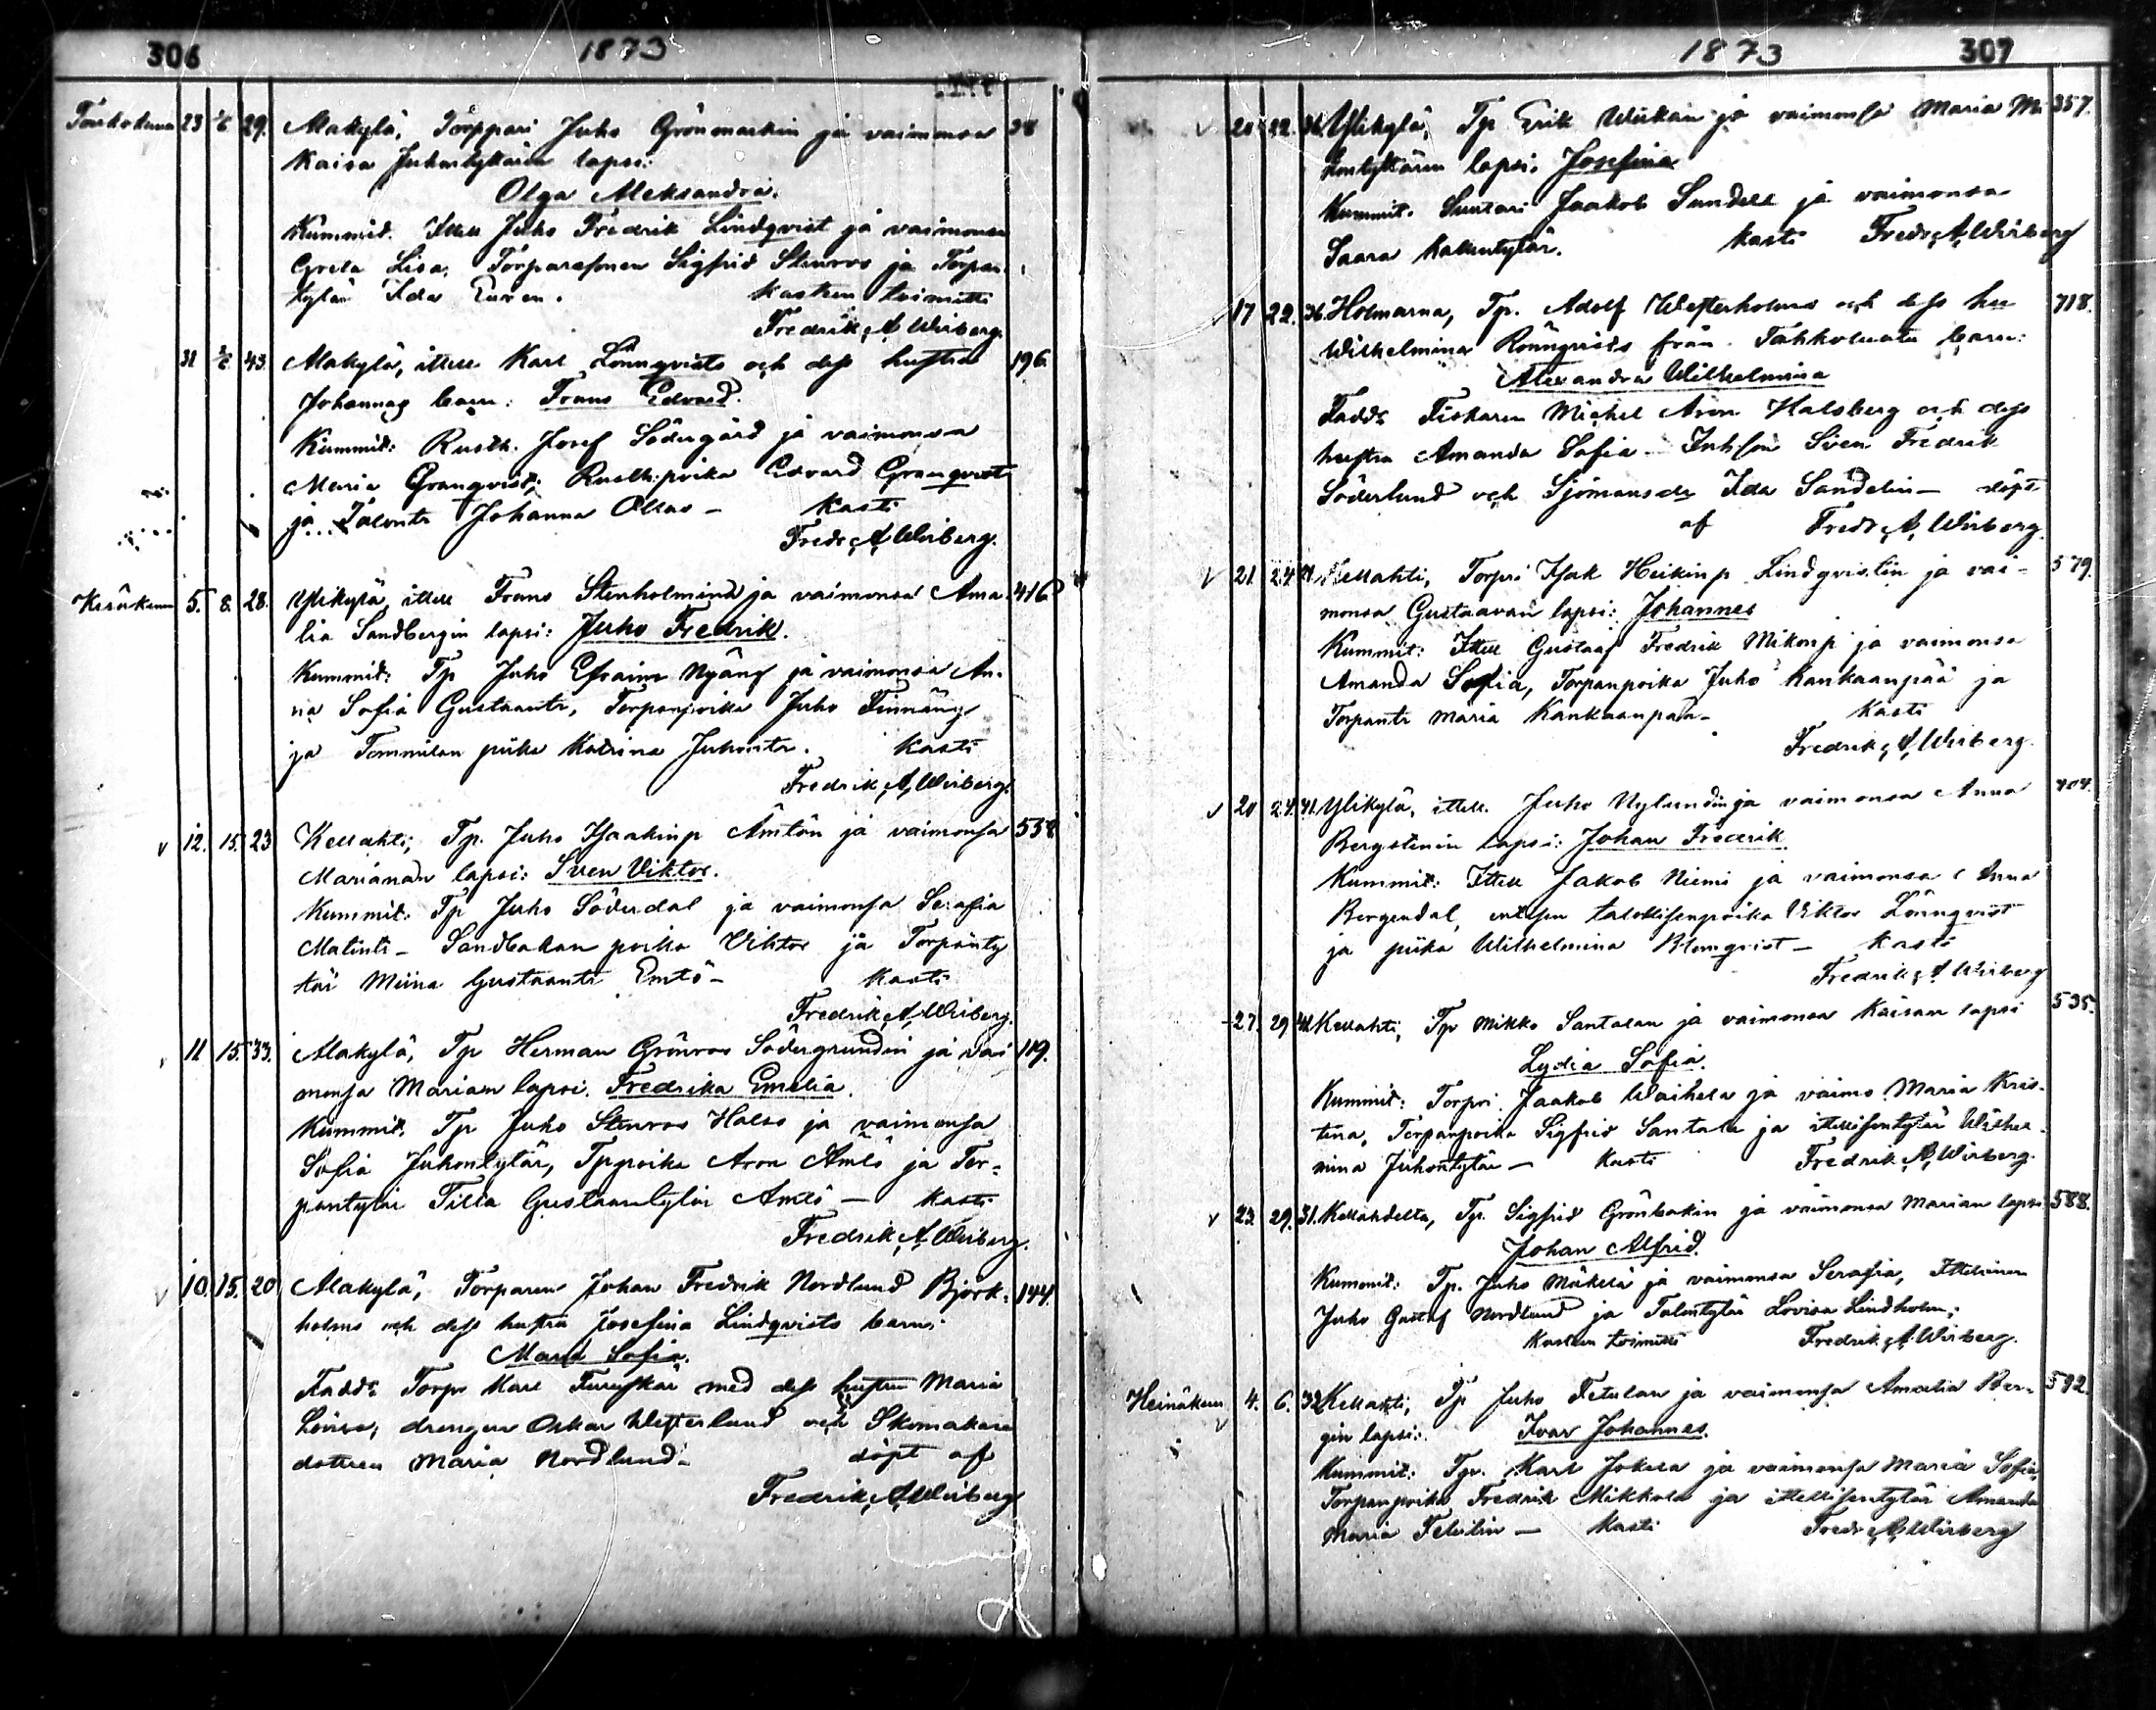 306 1873
Toukokuun 23 1/6 29. Alakylä, Torppari Juho Grönmarkin ja vaimonsa 38
Kaisa Juhontyttären lapsi:
Olga Aleksandra.
Kummit. Ittell Juho Fredrik Lindqvist ja vaimonsa
Greta Lisa, Torparesonen Sigfrid Stenros ja Torpan
tytär Ida Euren. Kasteen toimitti
Fredrik A. Wirberg.
31 2/6 43. Alakylä, ittell Karl Lönnqvists och dess hustru 196.
Johannas barn: Frans Edvard.
Kummit: Rusth. Josef Södergård ja vaimonsa
Maria Granqvist, Rusth:poika Edvard Granqvist
ja Talontr Johanna Ollas – Kasti
Fredr. A. Wirberg.
Kesäkuun 5. 8. 28. Ylikylä, ittell Frans Stenholmind ja vaimonsa Ama- 416
lia Sandbergin lapsi: Juho Fredrik.
Kummit: Tp Juho Efraim Nyäng ja vaimonsa An-
na Sofia Gustaantr, Torpanpoika Juho Finnäng
ja Tommilan piika Katrina Juhontr. Kasti
Fredrik A. Wirberg.
v 12. 15. 23 Kellahti, Tp. Juho Isaakinp Ämtön ja vaimonsa 558
Mariánan lapsi: Sven Viktor.
Kummit: Tp Juho Söderdal ja vaimonsa Serafia
Matintr – Sandbakan poika Viktor ja Torpanty
tär Miina Gustaantr Emtö – Kasti
Fredrik A. Wirberg.
11 15. 33. Alakylä, Tp Herman Grönros Södergrundin ja vai 119.
monsa Marian lapsi. Fredrika Emelia.
Kummit. Tp Juho Stenros Halso ja vaimonsa
Sofia Juhontytär, Tppoika Aron Ämtö ja Tor-
pantytär Tilda Gustaantytär Ämtö – Kasti
Fredrik A. Wirberg.
v 10. 15. 20 Alakylä, Torparen Johan Fredrik Nordlund Björk- 144.
holms och dess hustru Josefina Lindqvists barn:
Maria Sofia.
Fadd: Torp Karl Furuskär med dess hustru Maria
Lovisa, drengen Oskar Westerlund och Skomakare
dottren Maria Nordlund – döpt af
Fredrik A. Wirberg
1873 307
v 20 22. 36. Ylikylä, Tp Erik Wiikan ja vaimonsa Maria Mi- 357.
kontyttären lapsi. Josefina
Kummit. Suutari Jaakob Sundell ja vaimonsa
Saara Kallentytär. Kasti Fredr. A. Wirberg
17 22. 36. Holmarna, Tp. Adolf Westerholms och dess hu 718.
Wilhelmina Rönnqvists från Tahkoluoto barn:
Alexandra Wilhelmina
Fadd: Fiskaren Michel Aron Halsberg och dess
hustru Amanda Sofia – Inhson Sven Fredrik
Söderlund och Sjömansdr Ida Sandelin – döpt
af Fredr A. Wirberg.
v 21. 24. 41. Kellahti, Torpri Isak Heikinp Lindqvistin ja vai- 579.
monsa Gustaavan lapsi: Johannes
Kummit: Ittell Gustaaf Fredrik Mikonp ja vaimonsa
Amanda Sofia, Torpanpoika Juho Kankaanpää ja
Torpantr Maria Kankaanpää – Kasti
Fredrik A. Wirberg.
v 20 24. 41. Ylikylä, ittell. Juho Nylundin ja vaimonsa Anna 404.
Bergstenin lapsi: Johan Fredrik.
Kummit: Ittell Jakob Niemi ja vaimonsa Anna
Bergendal, entisen talollisenpoika Viktor Lönnqvist
ja piika Wilhelmina Blomqvist – Kasti
Fredrik A. Wirberg
27. 29 41. Kellahti, Tp Mikko Santalan ja vaimonsa Kaisan lapsi 535.
Lydia Sofia.
Kummit: Torpri Jaakob Waihela ja vaimo Maria Kris-
tina, Torpanpoika Sigfrid Santala ja ittellisentytär Wilhel-
mina Juhontytär – Kasti Fredrik A. Wirberg.
v 23. 29. 31. Kellahdelta, Tp. Sigfrid Grönbakin ja vaimonsa Marian lapsi 588.
Johan Alfrid.
Kummit: Tp. Juho Mäkelä ja vaimonsa Serafia, Ittellinen
Juho Gustaf Nordlund ja Talontytär Lovisa Lindholm.
Kasteen toimitti Fredrik A. Wirberg.
Heinäkuun 4. 6. 32 Kellahti, Tp Juho Tetulan ja vaimonsa Amalia Ber- 592.
v gin lapsi: Ivar Johannes.
Kummit: Tp. Karl Jokela ja vaimonsa Maria Sofia,
Torpanpoika Fredrik Mikkola ja ittellisentytär Amanda
Maria – Kasti Fredr A. Wirberg